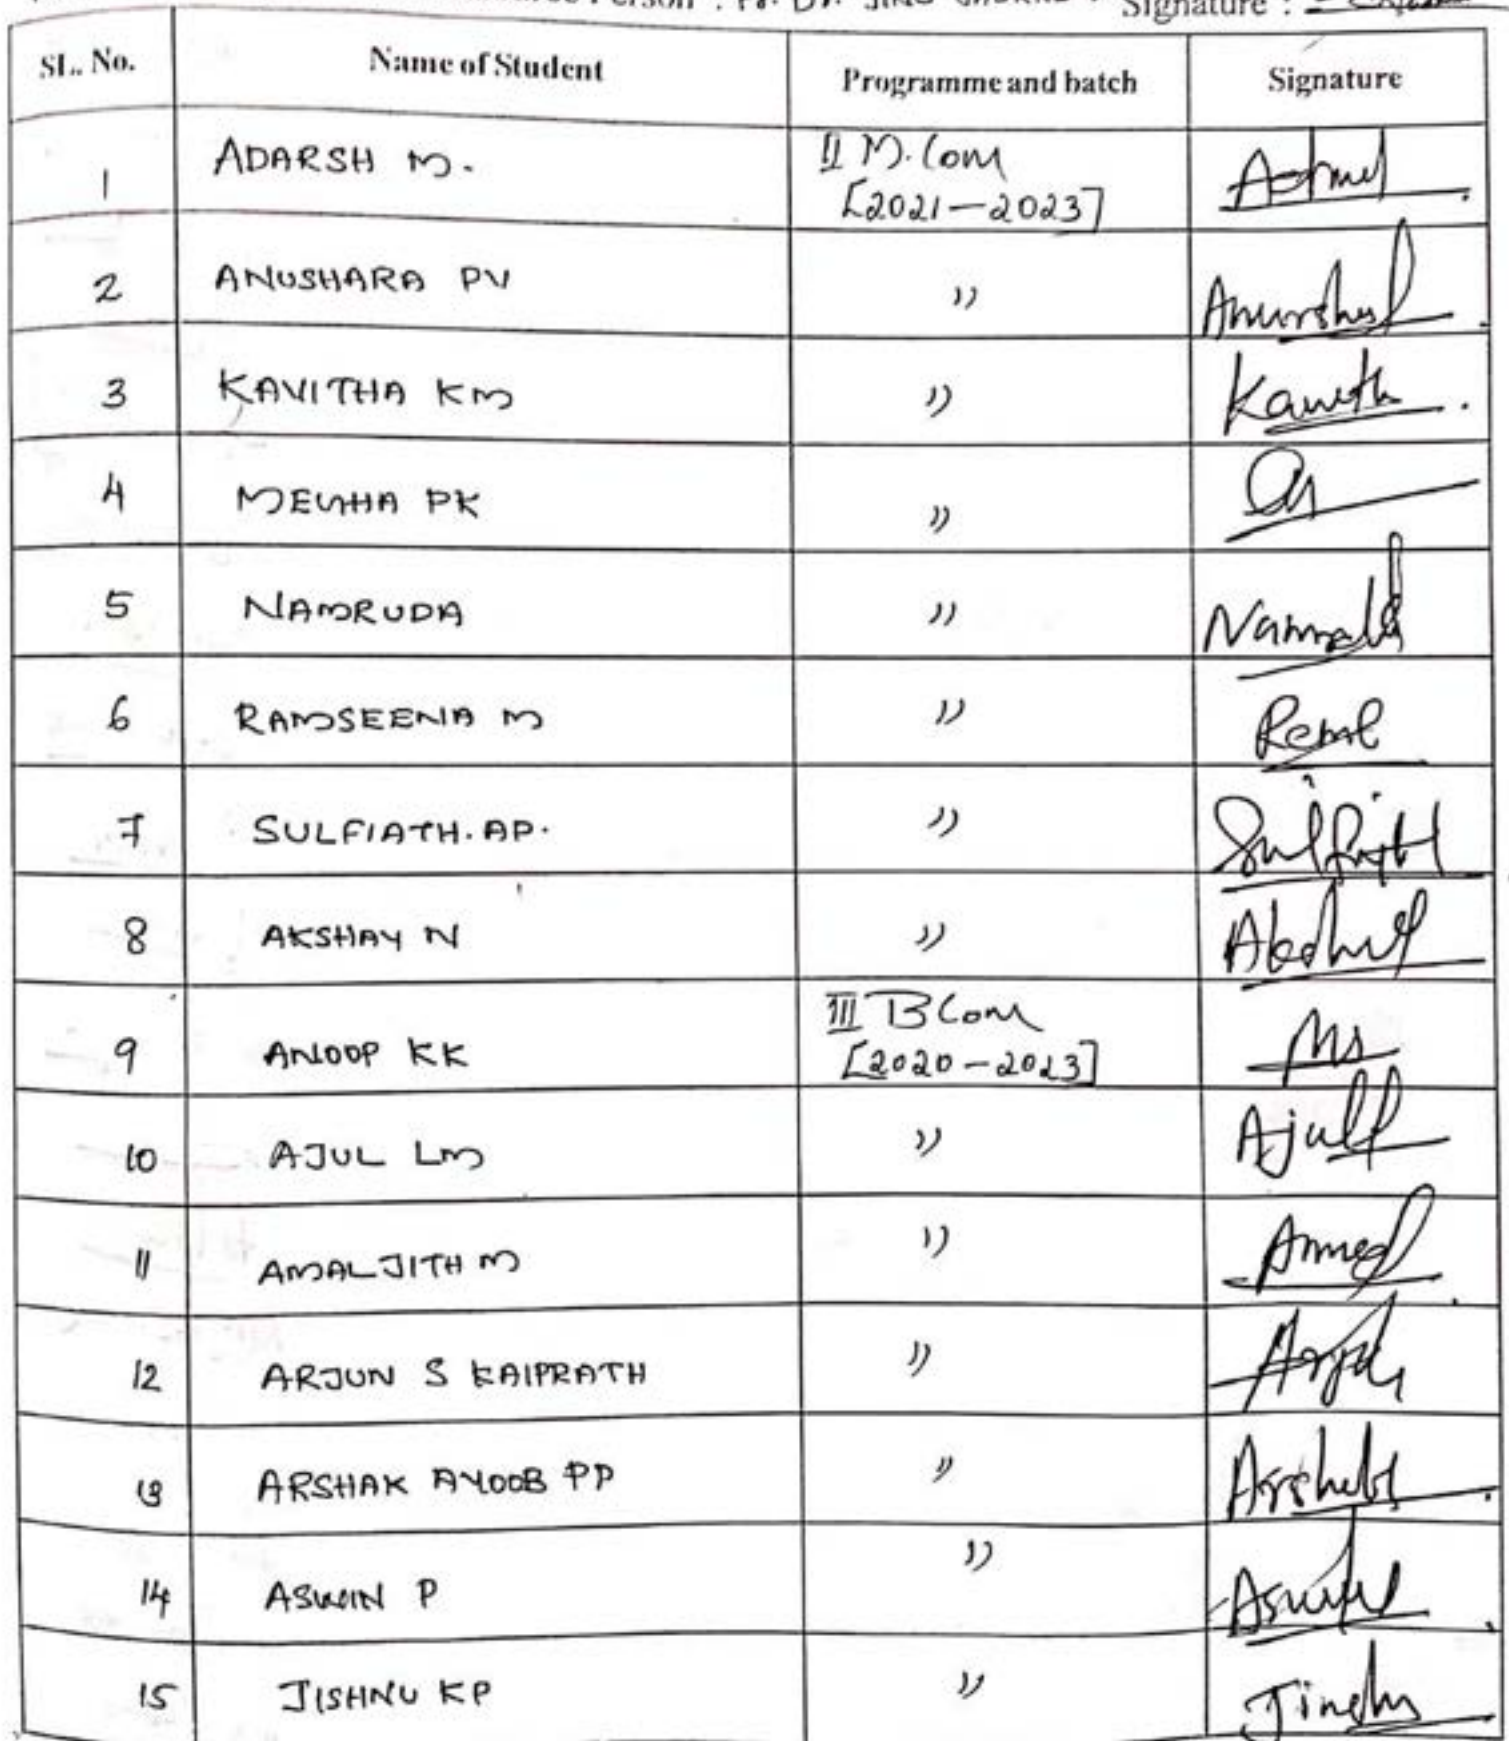 Person : Fr. Dr. Signature :
SL. No. Name of Student Programme and batch Signature
1 ADARSH M. II M.Com
[2021-2023]
2 ANUSHARA PV "
3 KAVITHA KM " Kavitha
4 MEGHA PK "
5 NAMRUDA "
6 RAMSEENA M "
7 SULFIATH.AP. " Sulfiath
8 AKSHAY N "
9 ANOOP KK III BCom
[2020-2023]
10 AJUL LM " Ajul
11 AMALJITH M "
12 ARJUN S KAIPRATH "
13 ARSHAK AYOOB PP "
14 ASWIN P "
15 JISHNU KP "